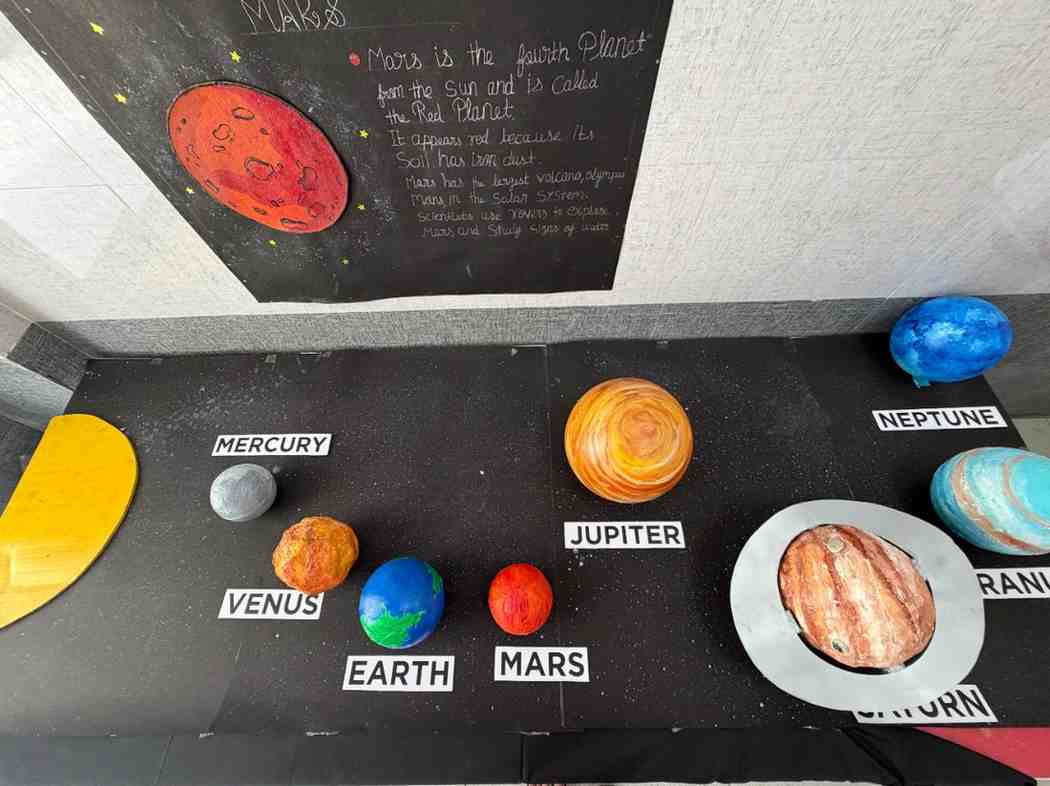 MARS
Mars is the fourth Planet
from the sun and is Called
the Red Planet.
It appears red because its
Soil has iron dust.
Mars has the largest volcano, olympus
Mons, in the Solar System.
Scientists use rovers to explore
Mars and Study signs of water
NEPTUNE
MERCURY
JUPITER
URANUS
VENUS
EARTH
MARS
SATURN